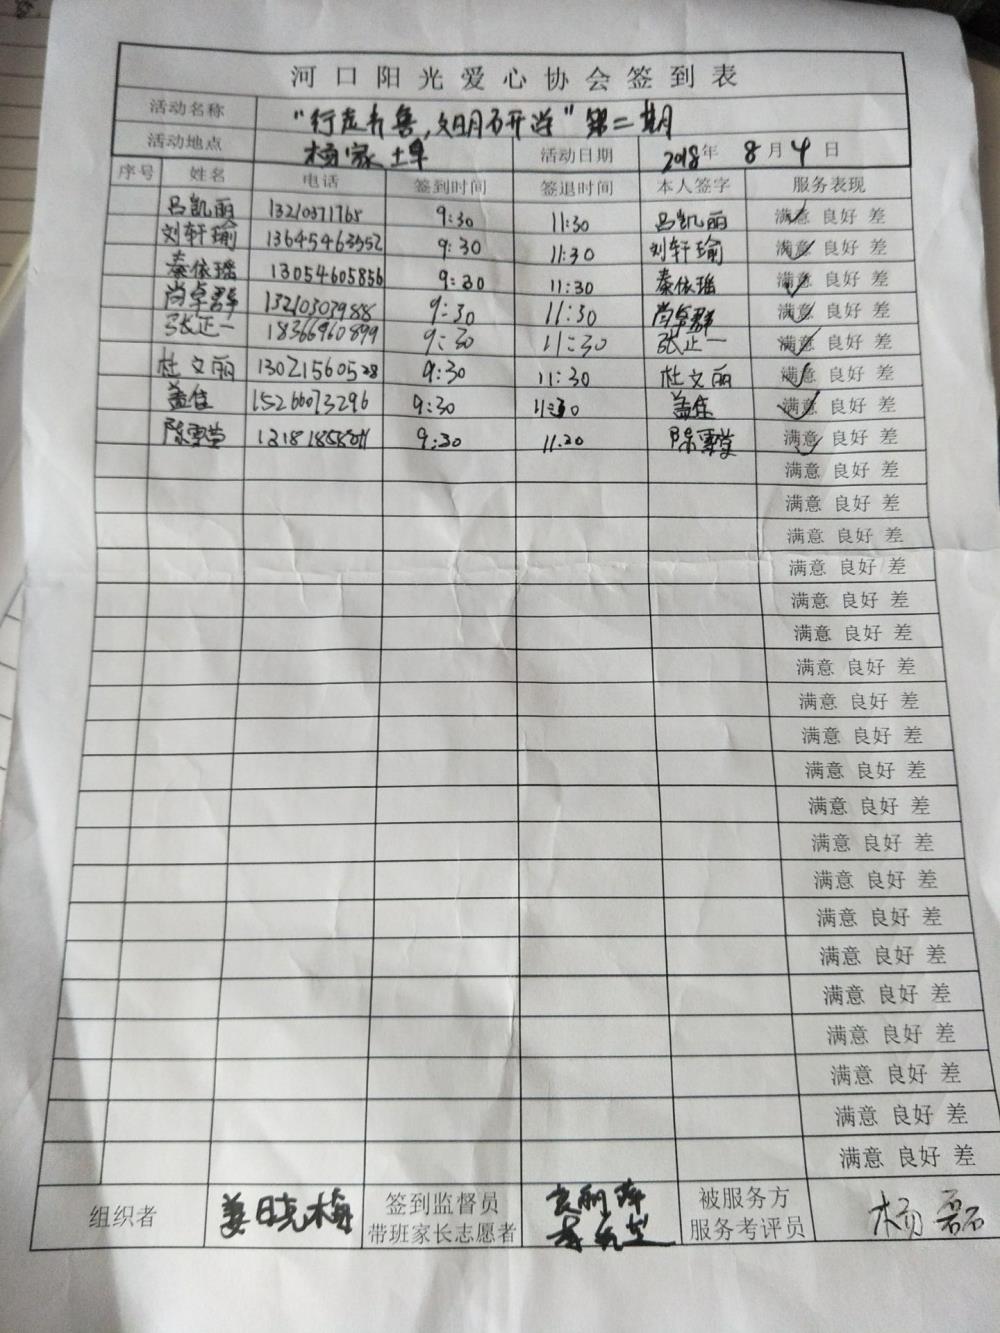 河口阳光爱心协会签到表
活动名称 "行走齐鲁,文明研学"第二期
活动地点 杨家埠 活动日期 2018年 8月4日
序号 姓名 电话 签到时间 签退时间 本人签字 服务表现
吕凯丽 13210371768 9:30 11:30 吕凯丽 满意 良好 差
刘轩瑜 13645463552 9:30 11:30 刘轩瑜 满意 良好 差
秦依瑶 13054605856 9:30 11:30 秦依瑶 满意 良好 差
尚卓群 13210303988 9:30 11:30 尚卓群 满意 良好 差
张正一 18366960899 9:30 11:30 张正一 满意 良好 差
杜文丽 13021560528 9:30 11:30 杜文丽 满意 良好 差
盖佳 15266073296 9:30 11:30 盖佳 满意 良好 差
陈雪莹 9:30 11:20 陈雪莹 满意 良好 差
满意 良好 差
满意 良好 差
满意 良好 差
满意 良好 差
满意 良好 差
满意 良好 差
满意 良好 差
满意 良好 差
满意 良好 差
满意 良好 差
满意 良好 差
满意 良好 差
满意 良好 差
满意 良好 差
满意 良好 差
满意 良好 差
满意 良好 差
满意 良好 差
满意 良好 差
满意 良好 差
组织者 姜晓梅 签到监督员 被服务方 杨磊
带班家长志愿者 服务考评员